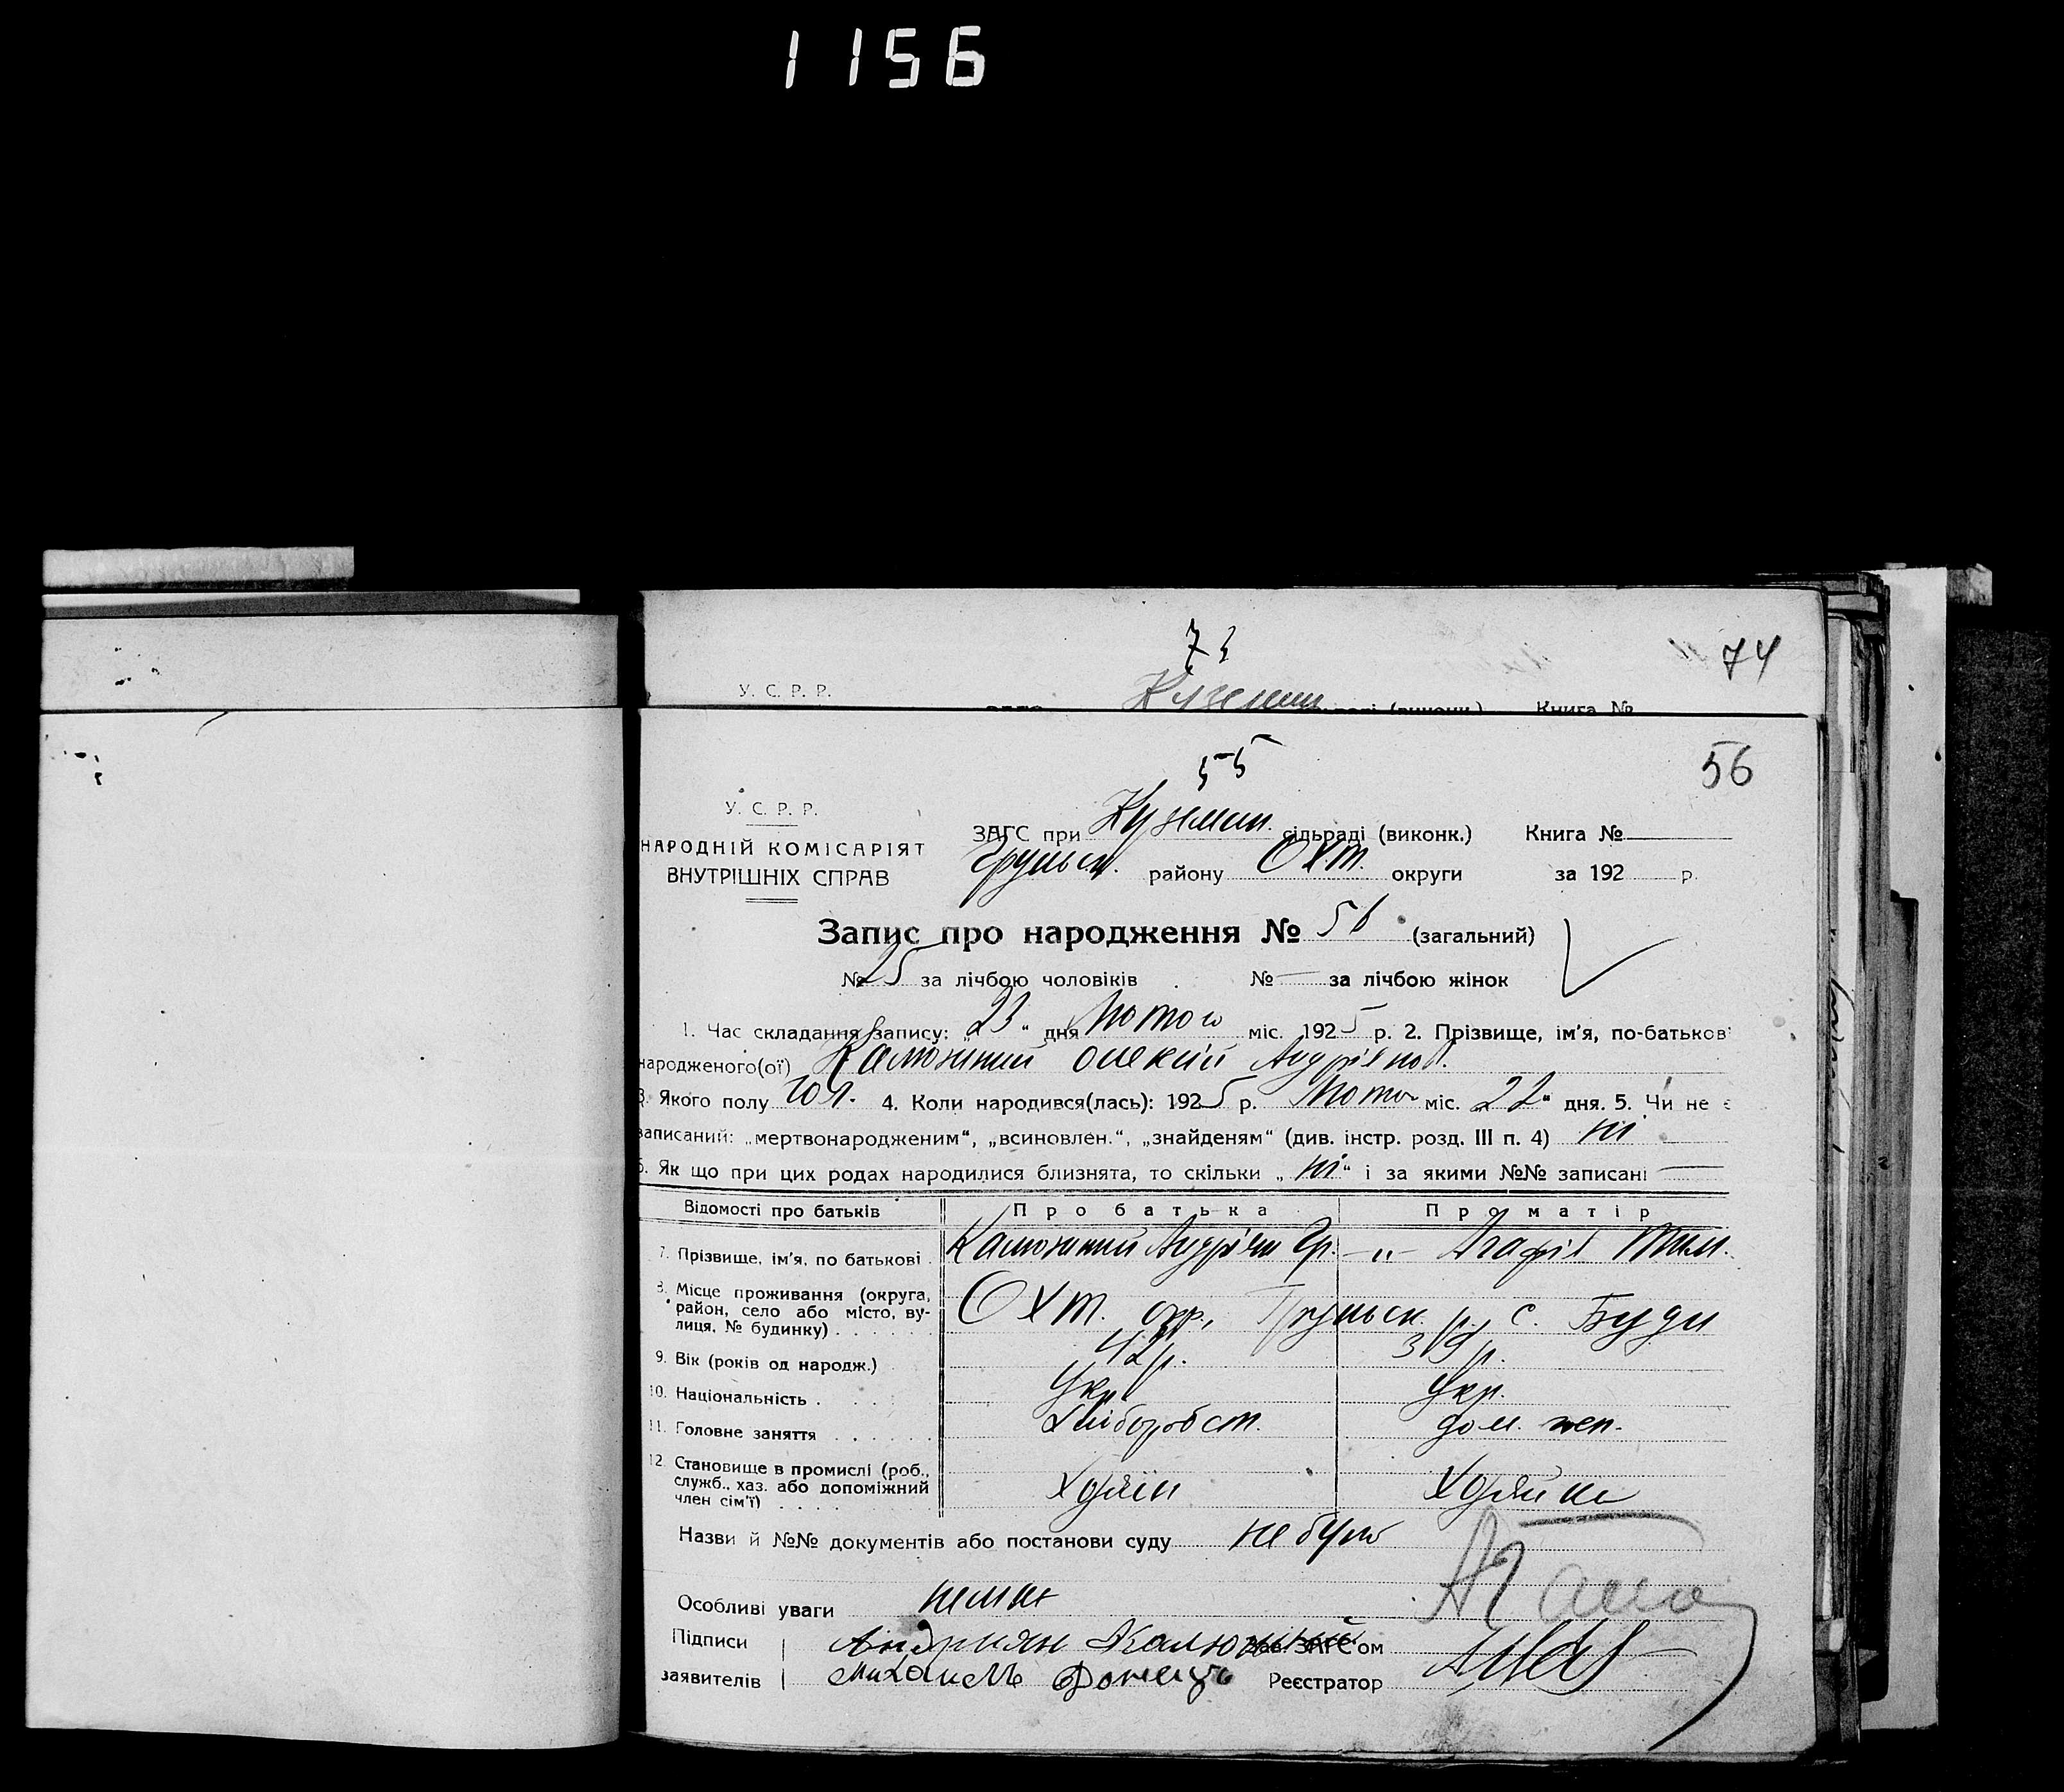 1156
73
74
У. С. Р. Р.
Кузємин
Книга №
55
56
У. С. Р. Р.
НАРОДНІЙ КОМІСАРІЯТ
ВНУТРІШНІХ СПРАВ
ЗАГС при Куземин. сільраді (виконк.) Книга №
Грунськ. району Охт. округи за 192 р.
Запис про народження № 56 (загальний)
№ 25 за лічбою чоловіків № — за лічбою жінок
1. Час складання запису: „23“ дня Лютого міс. 1925 р. 2. Прізвище, ім'я, по-батьков
народженого(ої) Калюжний Олекій Андріянов.
3. Якого полу чол. 4. Коли народився(лась): 1925 р. Лютого міс. „22“ дня. 5. Чи не є
записаний: „мертвонародженим“, „всиновлен.“, „знайденям“ (див. інстр. розд. III п. 4) ні
6. Як що при цих родах народилися близнята, то скільки „ні“ і за якими №№ записані —
Відомості про батьків Про батька Про матір
7. Прізвище, ім'я, по батькові Калюжний Андріян Гр. —„— Агафія Тим.
8. Місце проживання (округа, район, село або місто, вулиця, № будинку) Охт. окр., Грунськ. р. с. Буди
9. Вік (років од народж.) 42 р. 39 р.
10. Національність Укр. Укр.
11. Головне заняття Хлібороbст. дом. жен.
12. Становище в промислі (роб., служб., хаз. або допоміжний член сім'ї) Хозяїн Хозяйка
Назви й №№ документів або постанови суду не було
Особливі уваги немає
Підписи Андриян Калюжный Зав. ЗАГС'ом
заявителів Михаиль Донець Реєстратор